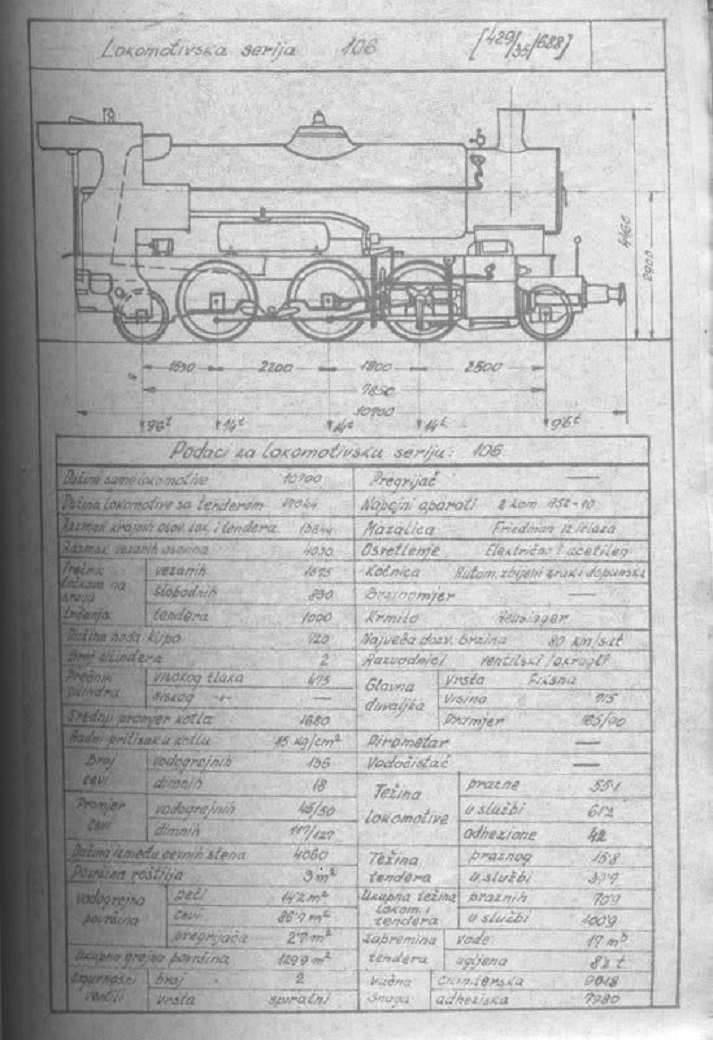 Lokomotivska serija 106 [429/35/688]
4460
2900
2200 1800 2500
7850
10700
9.6t 14t 14t 14t 9.6t
Podaci za lokomotivsku seriju: 106
Dužina same lokomotive 10700
Pregrijač —
Dužina lokomotive sa tenderom
Napojni aparati 2 kom.
Razmak krajnih osov. lok. i tendera
Mazalica Friedman 12 izlaza
Razmak vezanih osovina
Osvetlenje Električno i acetilen
Prečnik točkova na krugu trčanja
vezanih
slobodnih 830
tendera 1000
Kočnica Autom. zbijeni zrak i dopunska
Brzinomjer —
Krmilo Heusinger
Dužina hoda klipa 720
Najveća dozv. brzina 80 km/sat
Broj cilindera 2
Razvodnici ventilski /okrugli
Prečnik cilindra
visokog tlaka 475
niskog -"- —
Glavna duvaljka
vrsta Fiksna
visina 915
Promjer
Srednji promjer kotla 1680
Radni pritisak u kotlu 15 kg/cm²
Pirometar —
Broj cevi
vodogrejnih 136
dimnih 18
Vodočistač —
Promjer cevi
vodogrejnih 45/50
dimnih 119/127
Težina lokomotive
prazne 55.1
u službi 61.2
adhezione 42
Dužina između cevnih stena 4060
Površina roštilja 3 m²
Težina tendera
praznog 15.8
u službi 39.7
Vodogrejna površina
peći 14.2 m²
cevi
pregrijača
Ukupna težina lokom. i tendera
praznih 70.9
u službi 100.9
Ukupna grejna površina
Zapremina tendera
vode 17 m³
ugljena
Sigurnosni ventili
broj 2
vrsta spiralni
Vučna snaga
cilinderska
adheziska 7980